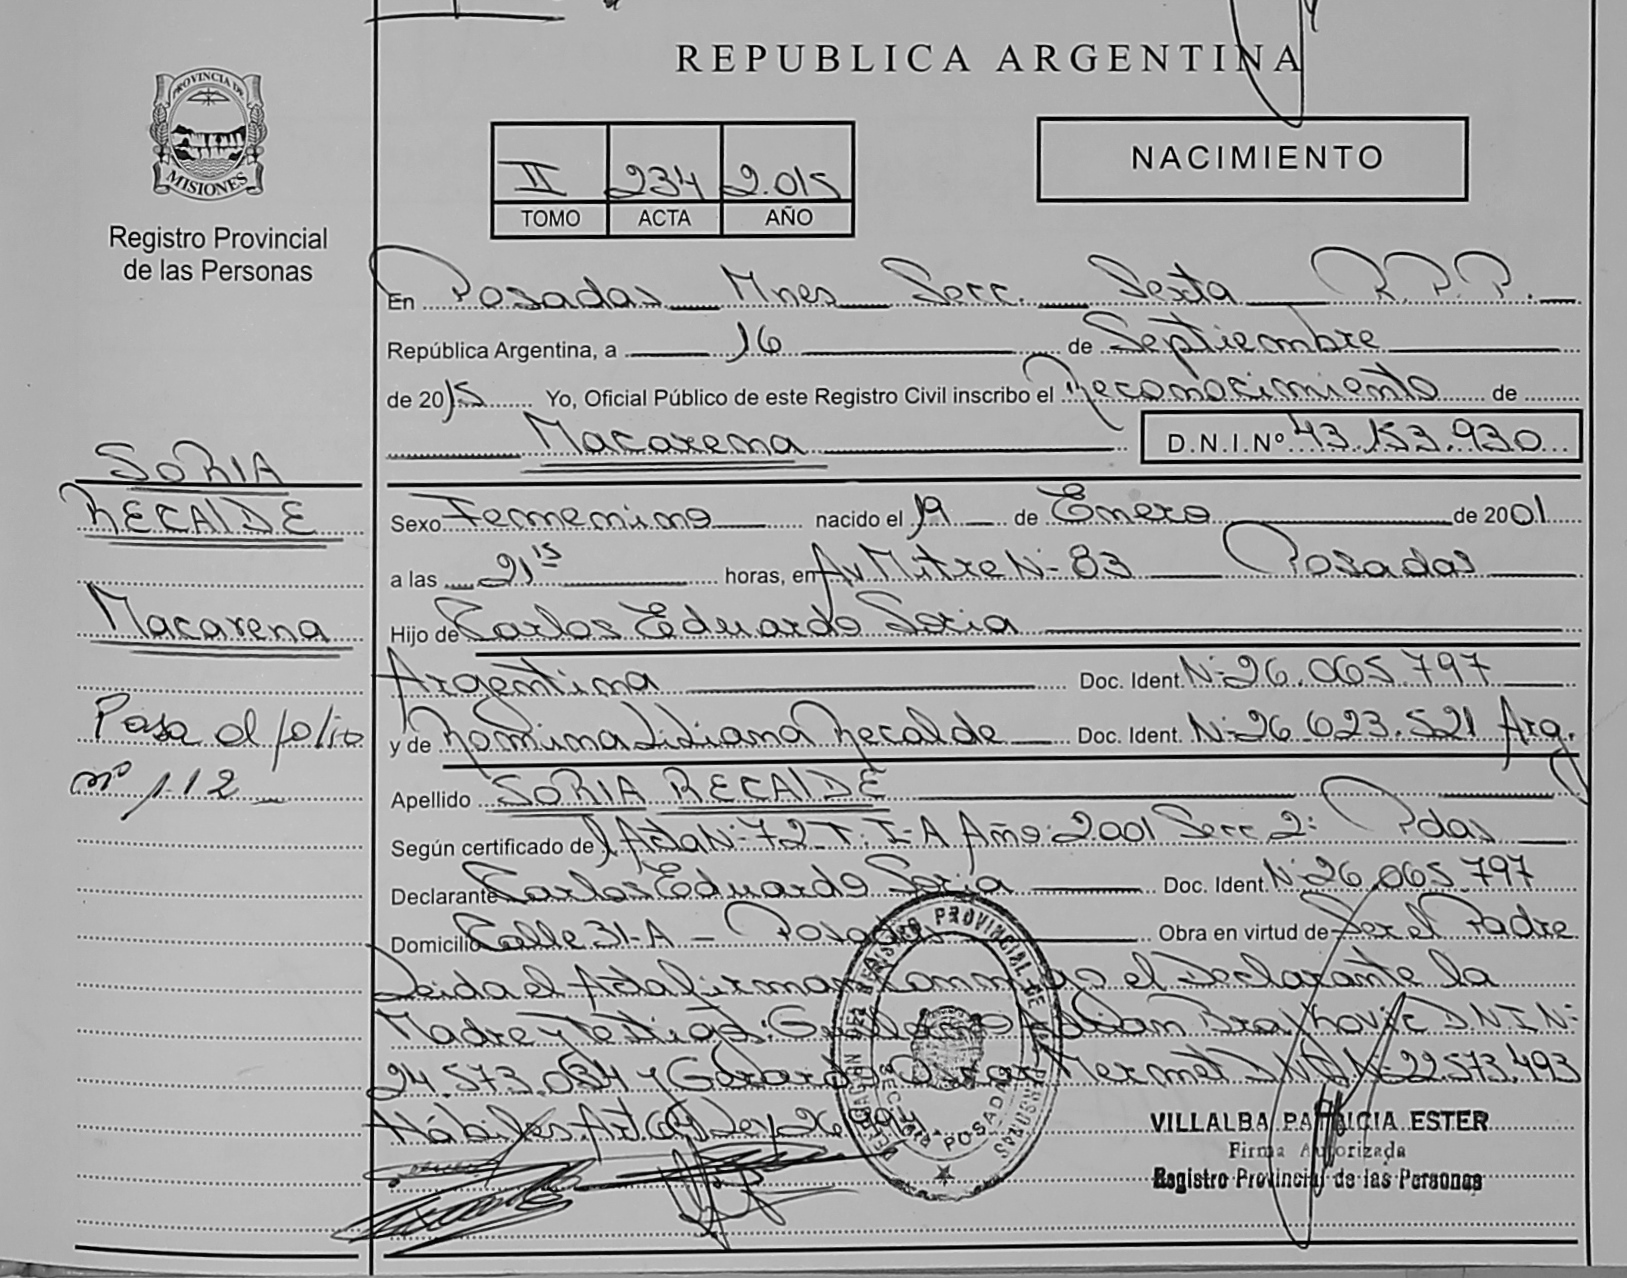 REPUBLICA ARGENTINA
PROVINCIA DE
MISIONES
Registro Provincial
de las Personas
NACIMIENTO
II 234 2.015
TOMO ACTA AÑO
En Posadas Mnes Secc. Sexta R.P.P.
República Argentina, a 16 de Septiembre
de 2015 Yo, Oficial Público de este Registro Civil inscribo el Reconocimiento de
Macarena D.N.I.Nº 43.153.930
SORIA
RECALDE
Macarena
Pasa al folio
nº 112
Sexo Femenino nacido el 19 de Enero de 2001
a las 21 15 horas, en Av Mitre N- 83 Posadas
Hijo de Carlos Eduardo Soria
Argentina Doc. Ident. N-26.065.797
y de Romina Liliana Recalde Doc. Ident. N-26.623.521 Arg.
Apellido SORIA RECALDE
Según certificado de Acta N: 72 T. I-A Año: 2001 Secc 2: Pdas
Declarante Carlos Eduardo Soria Doc. Ident. N-26.065.797
Domicilio Calle 31-A - Posadas Obra en virtud de Ser el Padre
Leida el Acta firman conmigo el Declarante la
Madre y Testigos: Adrian DNI N:
24.573.034 y Gerardo Mermet DNI N-22573.493
Hábiles. Art Ley 26
DELEGACION DEL REGISTRO PROVINCIAL DE LAS PERSONAS
POSADAS
VILLALBA PATRICIA ESTER
Firma Autorizada
Registro Provincial de las Personas